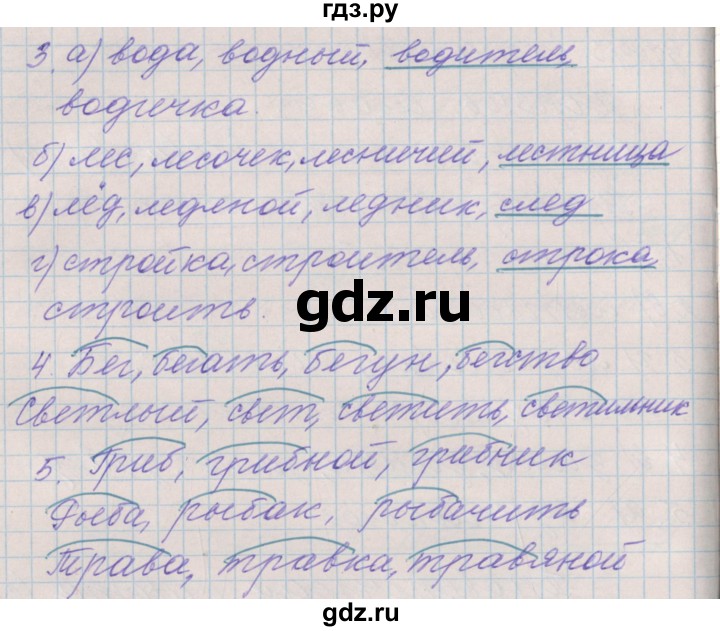 гдз.ру
3. а) вода, водный, водитель,
водичка.
б) лес, лесочек, лесничий, лестница
в) лёд, ледяной, ледник, след
г) стройка, строитель, строка,
строить.
gdz.ru
4. Бег, бегать, бегун, бегство
Светлый, свет, светить, светильник
5. Гриб, грибной, грибник
Рыба, рыбак, рыбачить
Трава, травка, травяной
gdz.ru